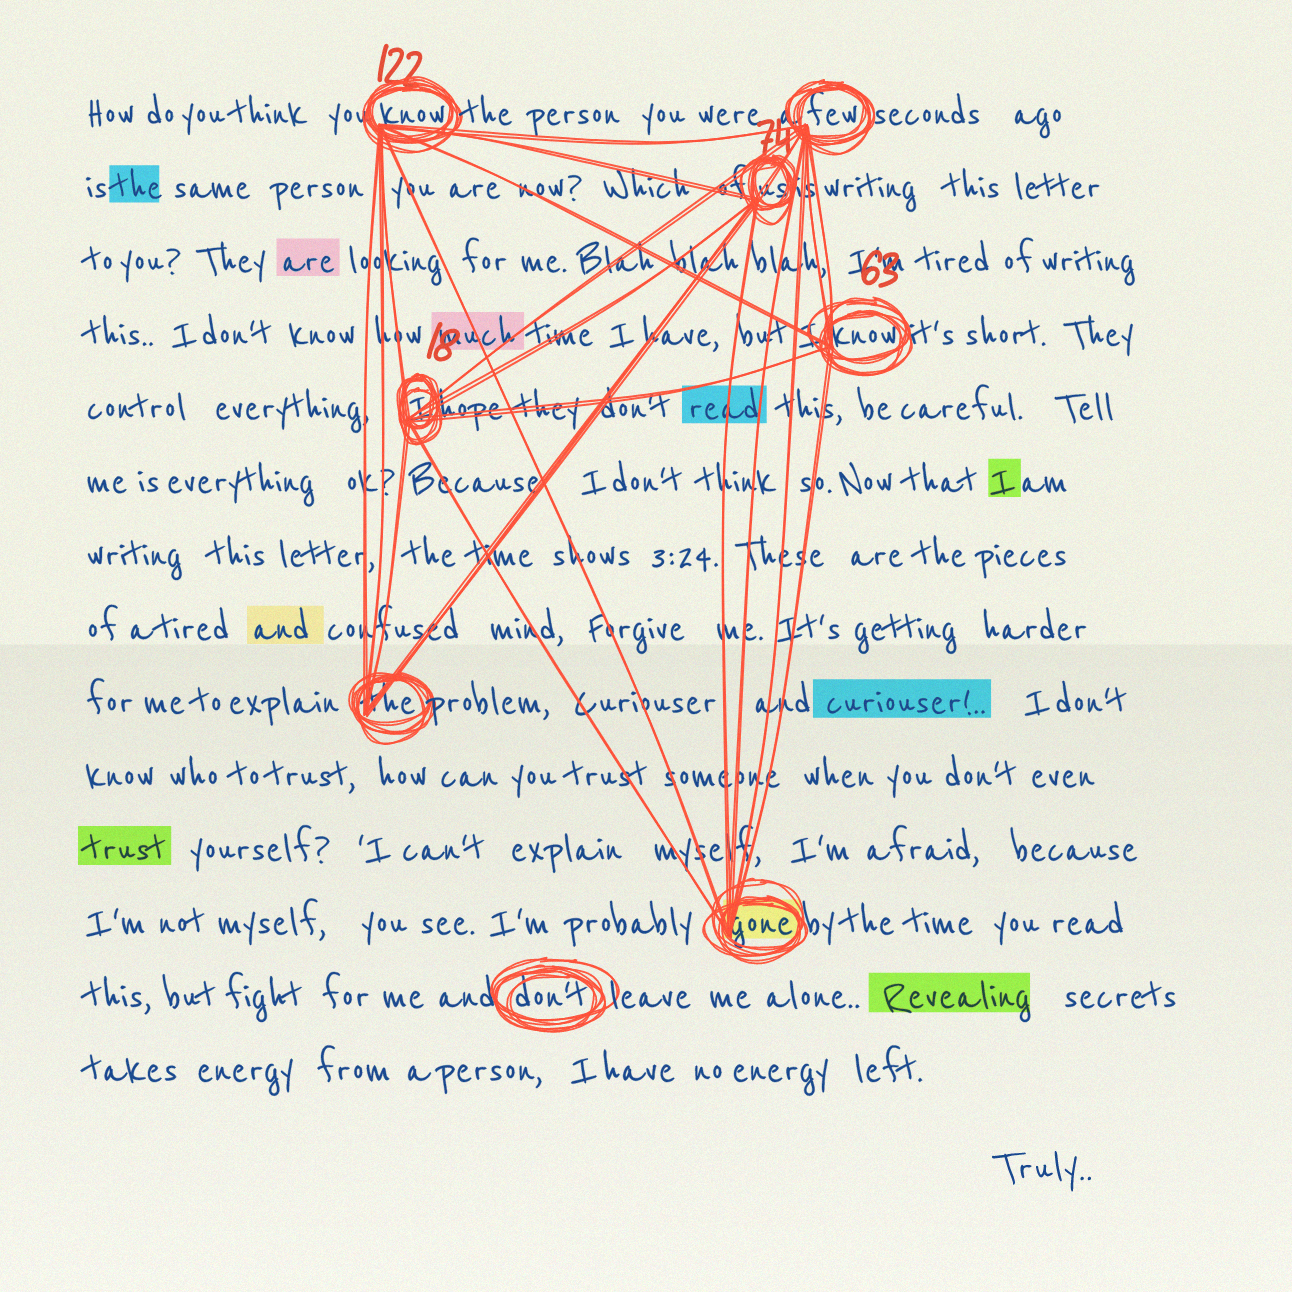 122
How do you think you know the person you were a few seconds ago
74
is the same person you are now? Which of us is writing this letter
to you? They are looking for me. Blah blah blah, I'm tired of writing
63
this.. I don't know how much time I have, but I know it's short. They
18
control everything, I hope they don't read this, be careful. Tell
me is everything ok? Because I don't think so. Now that I am
writing this letter, the time shows 3:24. These are the pieces
of a tired and confused mind, Forgive me. It's getting harder
for me to explain the problem, Curiouser and curiouser!.. I don't
know who to trust, how can you trust someone when you don't even
trust yourself? 'I can't explain myself, I'm afraid, because
I'm not myself, you see. I'm probably gone by the time you read
this, but fight for me and don't leave me alone.. Revealing secrets
takes energy from a person, I have no energy left.
Truly..